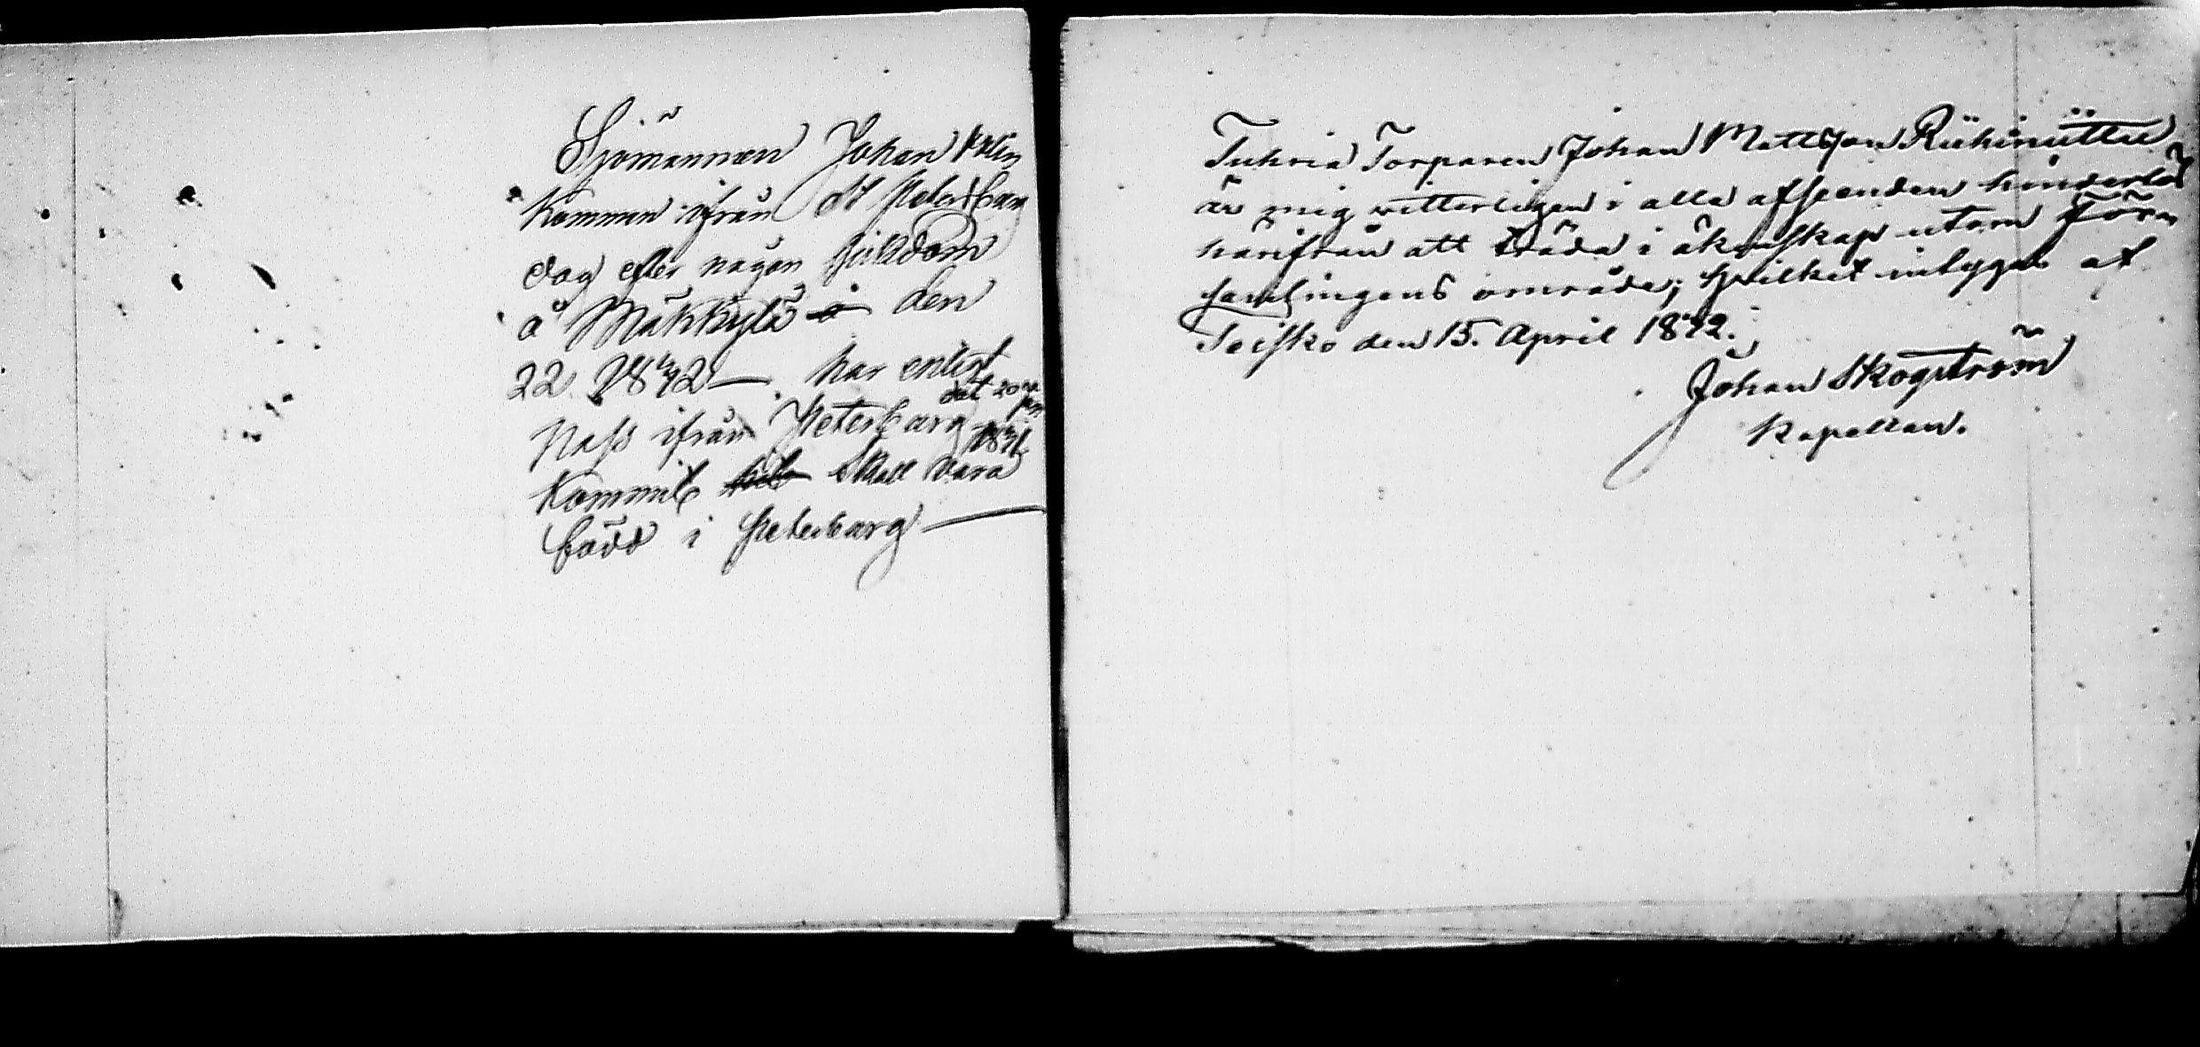 Sjömannen Johan
Kommen ifrån St Petersburg
dog efter någon sjukdom
å Mäkkylä å den
22 1842 — har enligt
Pass ifrån Peterburg dat 20
Kommit skall vara
född i Peterburg —
Torparen Johan Mattsson Riihiniittu
är mig vitterligen i alla afseenden hinderlös
härifrån att träda i äktenskap utom Förs
samlingens område; hvilket intygas af
Teisko den 15. April 1842.
Johan Skogström
Kapellan.